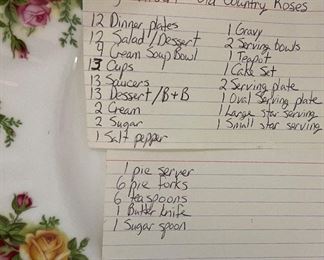 Old Country Roses
12 Dinner plates
12 Salad/Dessert
9 Cream Soup Bowl
13 Cups
13 Saucers
13 Dessert/B+B
2 Cream
2 Sugar
1 Salt pepper
1 Gravy
2 Serving bowls
1 Teapot
1 Cake Set
2 Serving plate
1 Oval Serving plate
1 Large star serving
1 Small star serving
1 pie server
6 pie forks
6 teaspoons
1 Butter knife
1 Sugar spoon